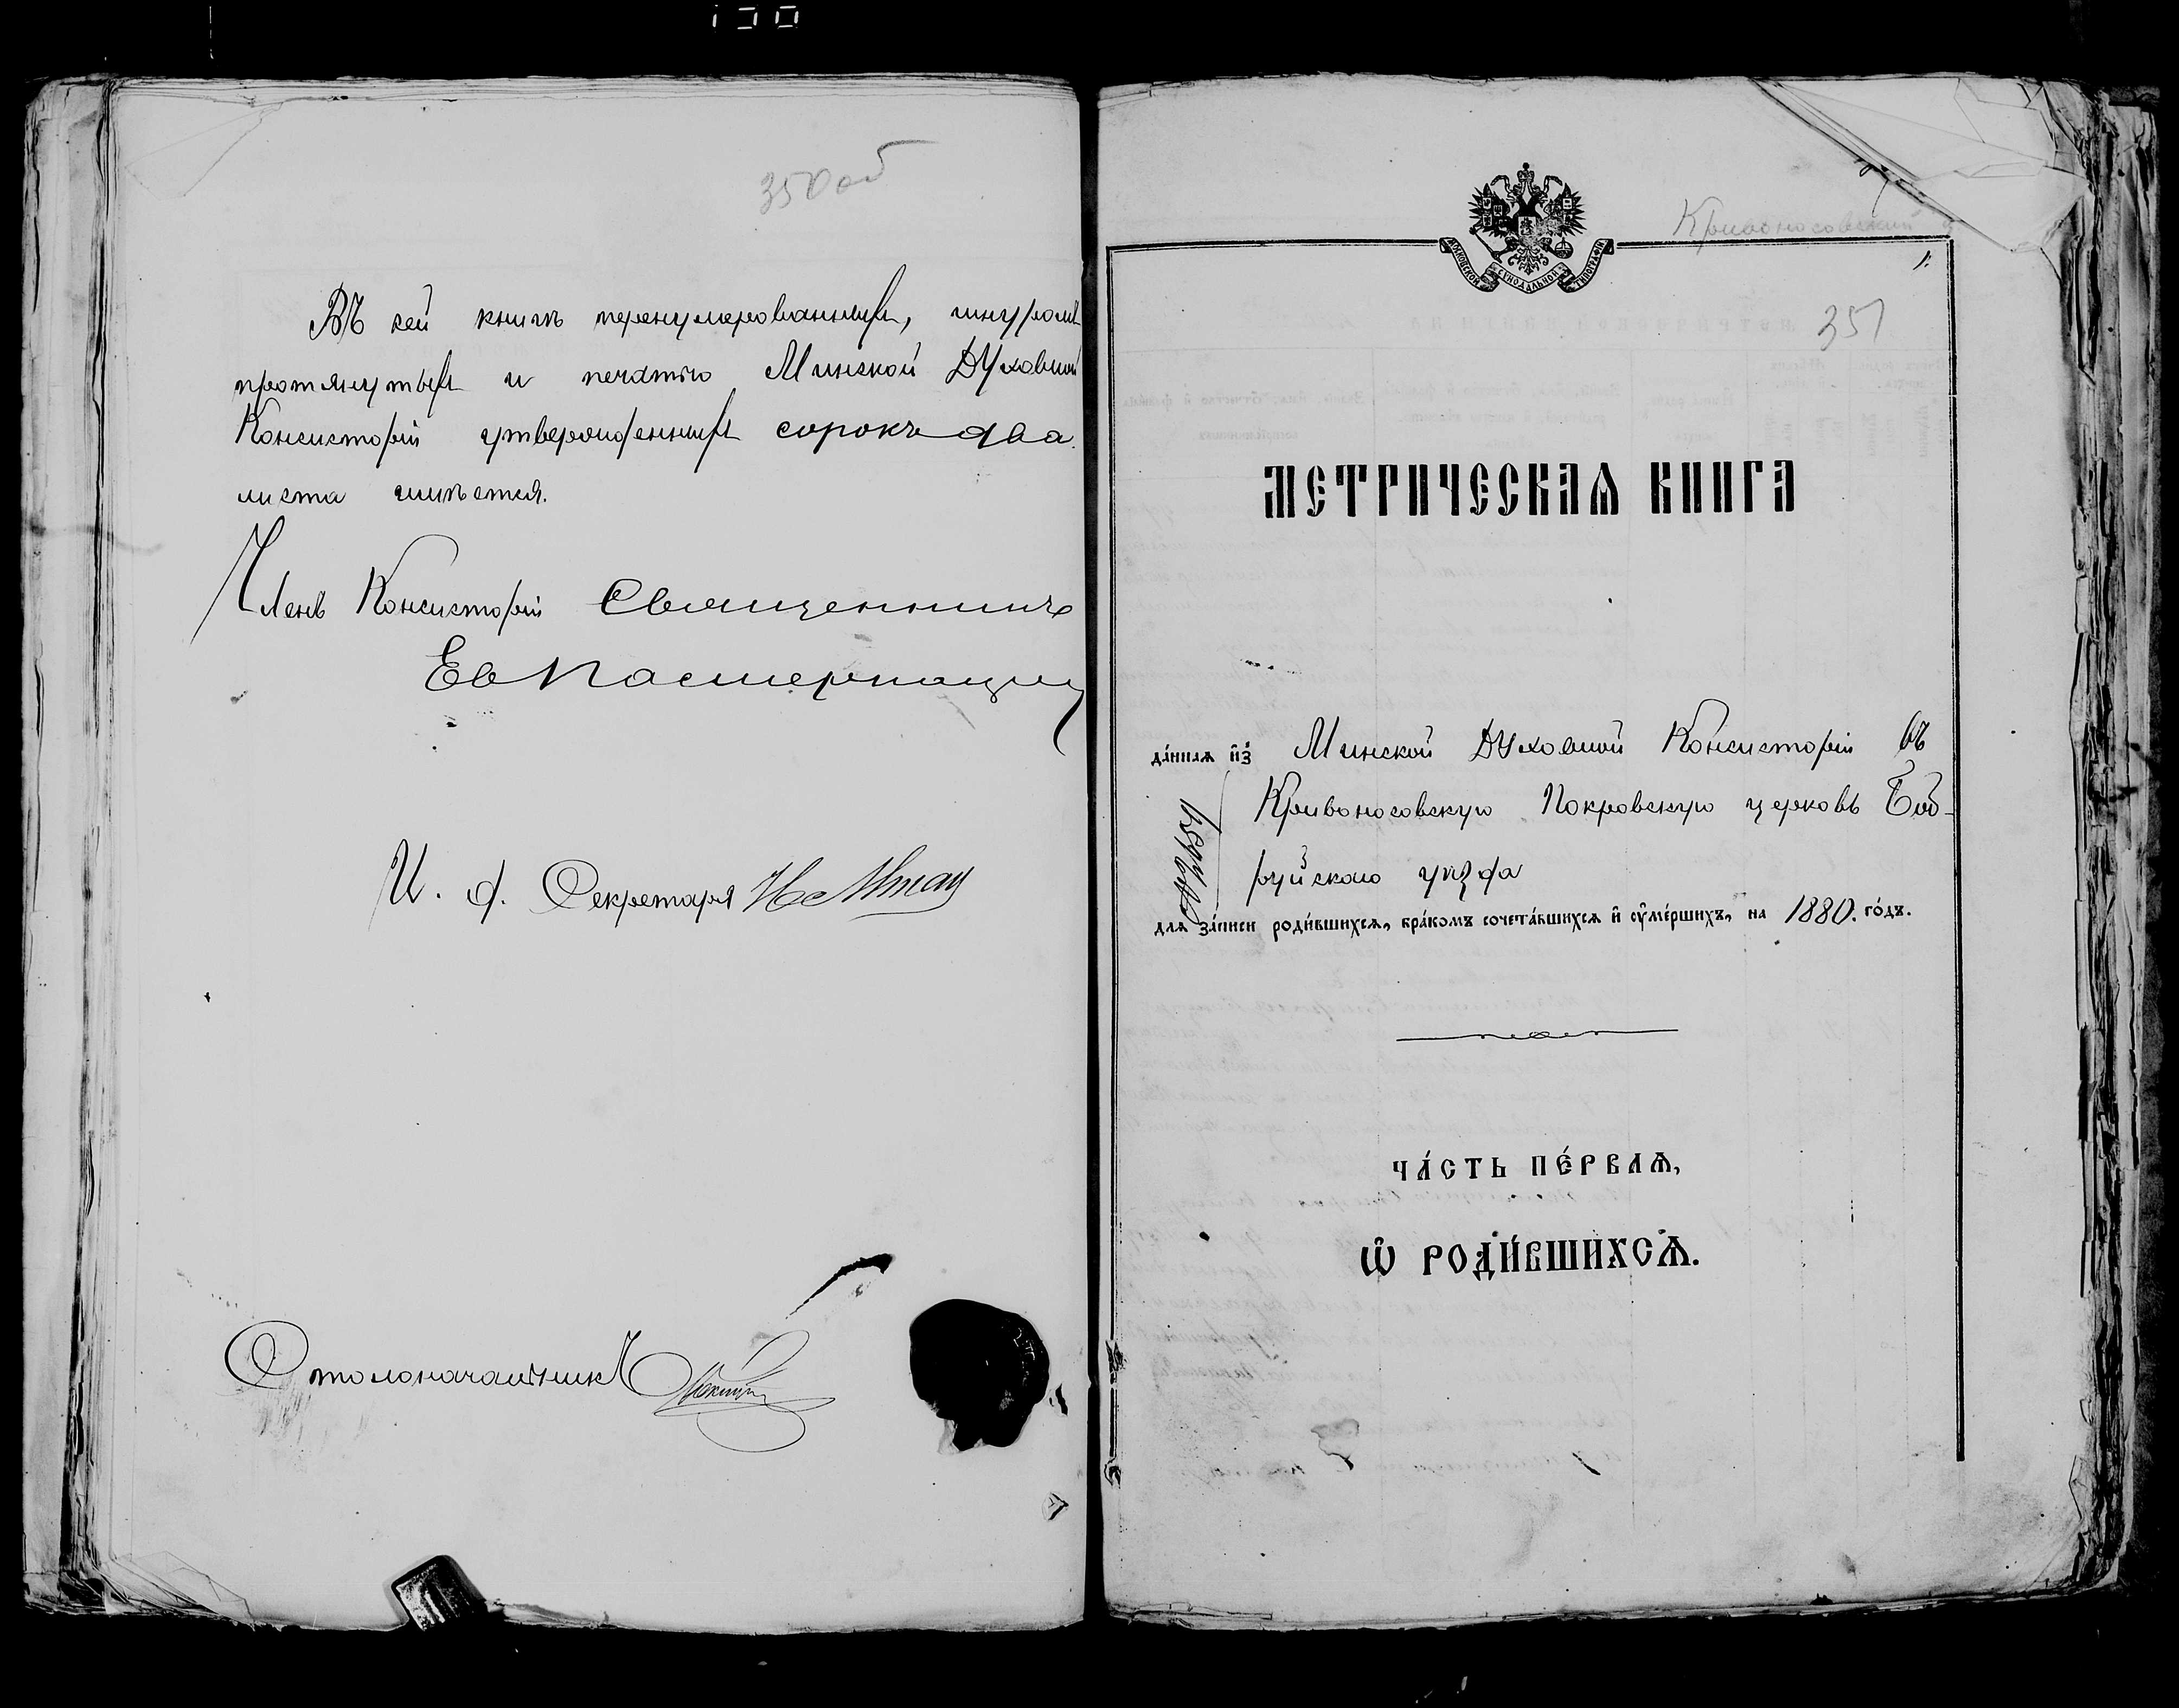 350 об
Въ сей книгѣ перенумерованныхъ, шнуромъ
протянутыхъ и печатью Минской Духовной
Консисторіи утвержденныхъ сорокъ два
листа имѣется.
Членъ Консисторіи Священникъ
И. д. Секретаря
Столоначальникъ
Кривоносовской
МОСКОВСКОЙ СѴНОДАЛЬНОЙ ТИПОГРАФІИ
1.
351
МЕТРИЧЕСКАѦ КНИГА
да́ннаѧ и҆з̾ Минской Духовной Консисторіи въ
Кривоносовскую Покровскую церковь Боб-
руйскаго уѣзда
длѧ за́писи роди́вшихсѧ, бра́комъ сочета́вшихсѧ и҆ ᲂу҆ме́ршихъ, на 1880. го́дъ.
ЧА́СТЬ ПЕ́РВАѦ,
Ѡ҆ РОДИ́ВШИХСѦ.